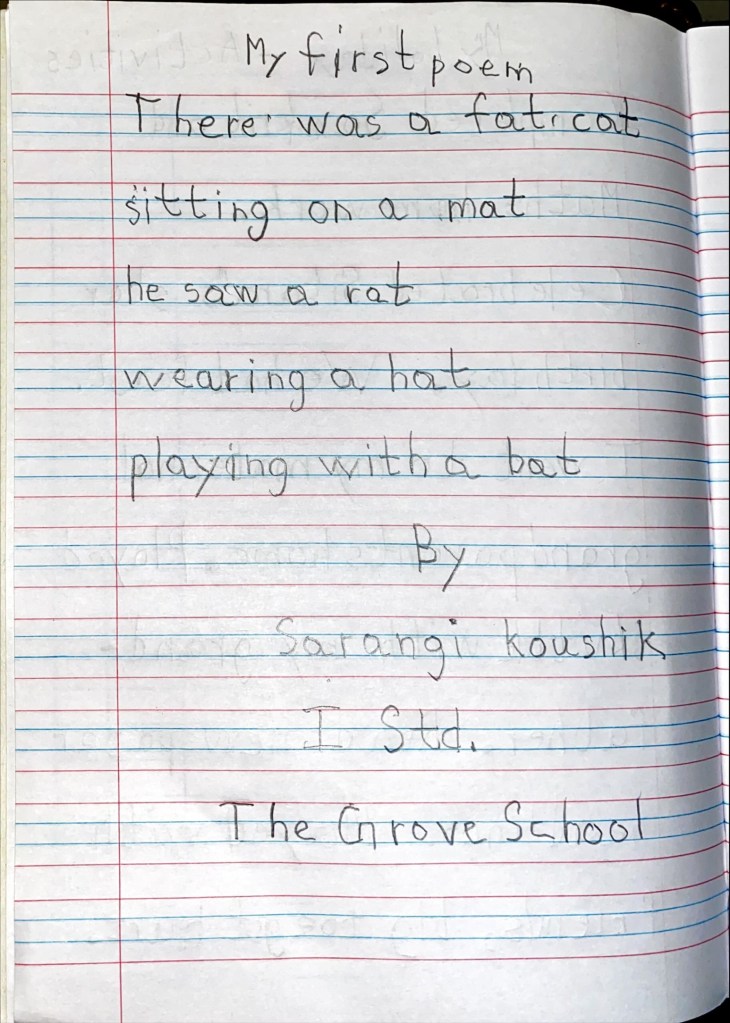 My first poem
There was a fat cat
sitting on a mat
he saw a rat
wearing a hat
playing with a bat
By
Sarangi koushik
I Std.
The Grove School